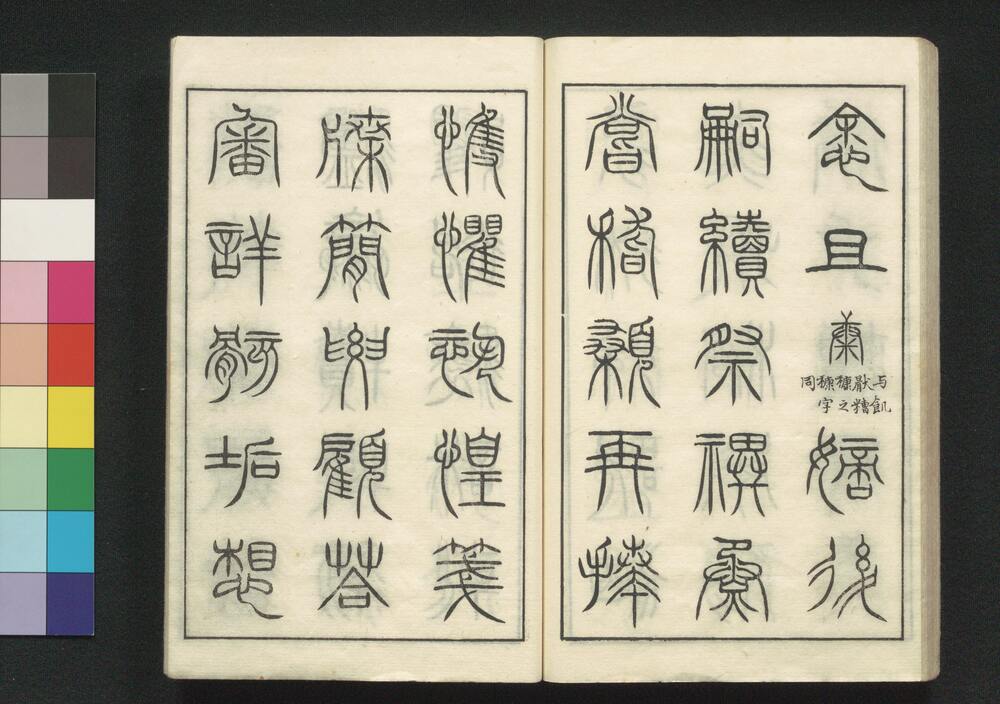 悆且康与飢厭糟穅之穅字同嫡後
嗣續祭禩烝
嘗稽顙再拜
愯懼恐惶箋
牒簡要顧荅
審詳骸垢想